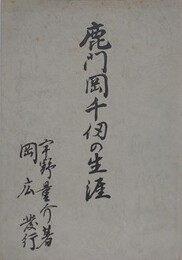 鹿門岡千仭の生涯
宇野量介著
岡広 発行